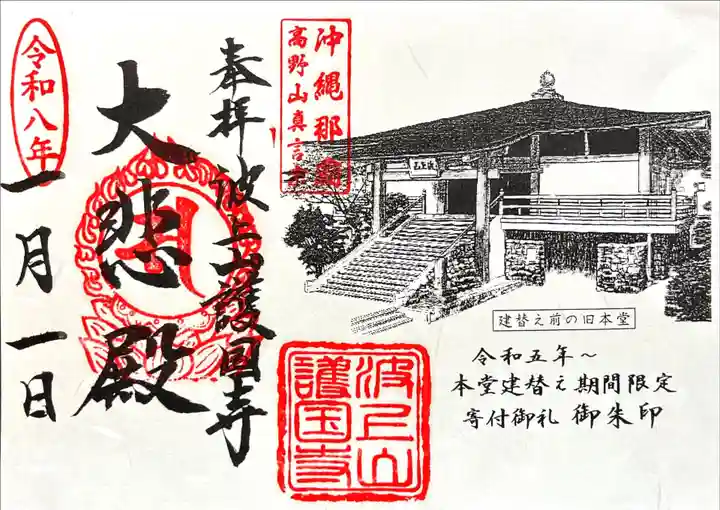 沖縄那覇
高野山真言宗
奉拝 波上山護国寺
大悲殿
令和八年
一月一日
波上山
護国寺
建替え前の旧本堂
令和五年~
本堂建替え期間限定
寄付御礼 御朱印